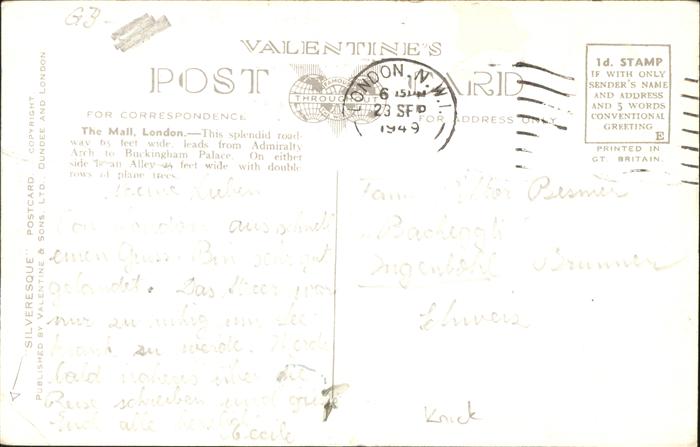 GB-
VALENTINE'S
POST CARD
FAMOUS
THROUGHOUT
FOR CORRESPONDENCE
FOR ADDRESS ONLY
1d. STAMP
IF WITH ONLY
SENDER'S NAME
AND ADDRESS
AND 5 WORDS
CONVENTIONAL
GREETING
E
PRINTED IN
GT. BRITAIN.
LONDON. N.W.1.
6 15 PM
23 SEP
1949
"SILVERESQUE" POSTCARD. COPYRIGHT.
PUBLISHED BY VALENTINE & SONS, LTD. DUNDEE AND LONDON
The Mall, London.—This splendid road-
way 65 feet wide, leads from Admiralty
Arch to Buckingham Palace. On either
side is an Alley 25 feet wide with double
rows of plane trees.
Meine Lieben
Von London aus schnell
einen Gruss. Bin sehr gut
gelandet. Das Meer war
nur zu ruhig um see-
krank zu werde. Werde
bald näheres über die
Reise schreiben und grüsse
Euch alle herzlich
Cécile
Fam. Besmer
"Bacheggli"
Ingenbohl Brunnen
Schweiz
Knick